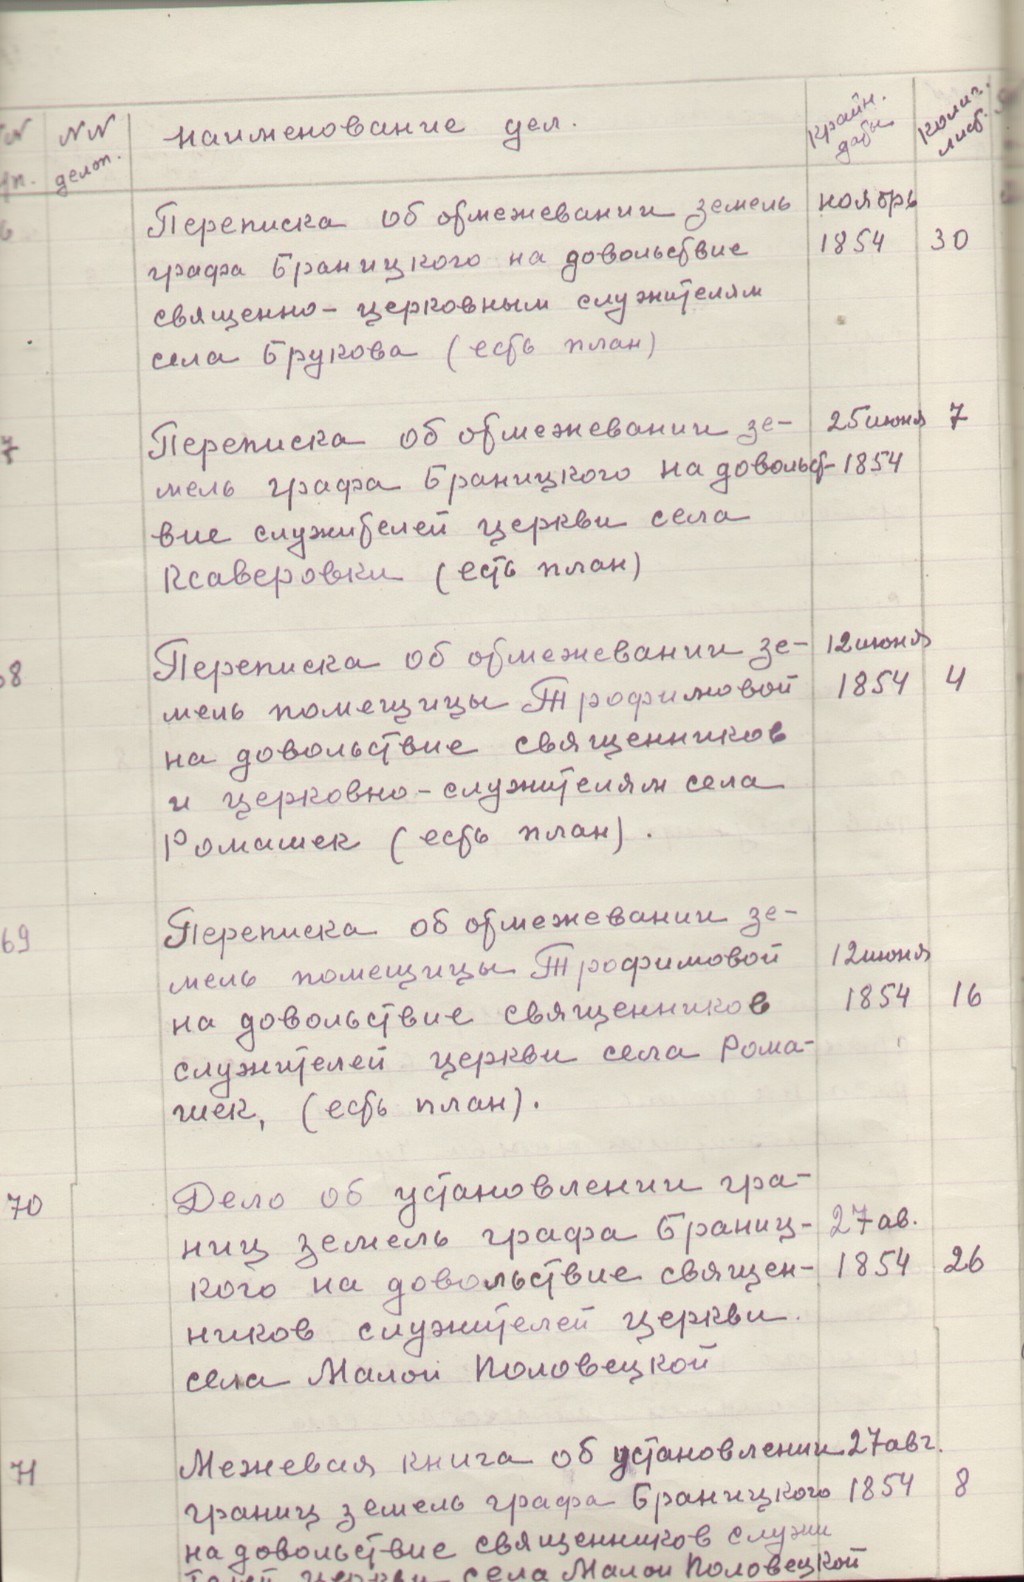 NN NN наименование дел. крайн. колич.
пп. делоп. даты лист.
6 Переписка об обмежевании земель ноябрь
графа Браницкого на довольствие 1854 30
священно-церковным служителям
села Брукова (есть план)
7 Переписка об обмежевании зе- 25 июня 7
мель графа Браницкого на довольст- 1854
вие служителей церкви села
Ксаверовки (есть план)
68 Переписка об обмежевании зе- 12 июня
мель помещицы Трофимовой 1854 4
на довольствие священников
и церковно-служителям села
Ромашек (есть план).
69 Переписка об обмежевании зе-
мель помещицы Трофимовой 12 июня
на довольствие священников 1854 16
служителей церкви села Рома-
шек, (есть план).
70 Дело об установлении гра-
ниц земель графа Браниц- 27 ав.
кого на довольствие священ- 1854 26
ников служителей церкви
села Малой Половецкой
71 Межевая книга об установлении 27 авг.
границ земель графа Браницкого 1854 8
на довольствие священников служи
телей церкви села Малой Половецкой